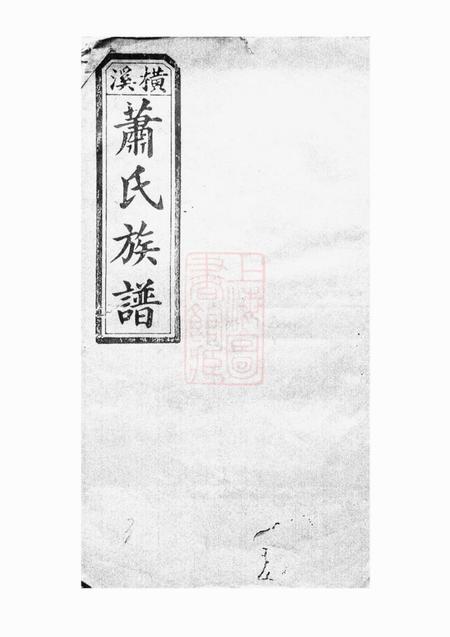 橫溪
蕭氏族譜
上海圖書館藏